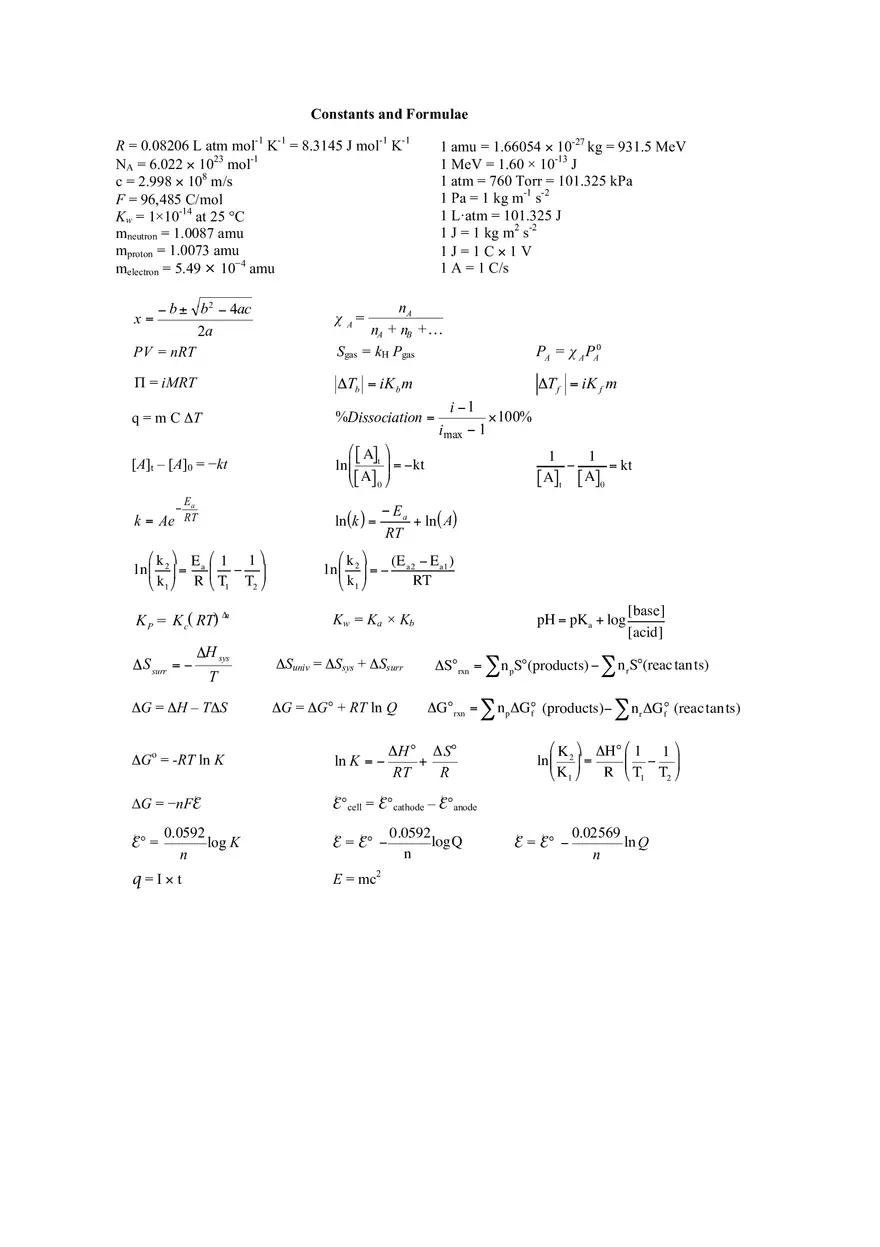 Constants and Formulae
R = 0.08206 L atm mol⁻¹ K⁻¹ = 8.3145 J mol⁻¹ K⁻¹
N_A = 6.022 × 10²³ mol⁻¹
c = 2.998 × 10⁸ m/s
F = 96,485 C/mol
K_w = 1×10⁻¹⁴ at 25 °C
m_neutron = 1.0087 amu
m_proton = 1.0073 amu
m_electron = 5.49 × 10⁻⁴ amu
1 amu = 1.66054 × 10⁻²⁷ kg = 931.5 MeV
1 MeV = 1.60 × 10⁻¹³ J
1 atm = 760 Torr = 101.325 kPa
1 Pa = 1 kg m⁻¹ s⁻²
1 L·atm = 101.325 J
1 J = 1 kg m² s⁻²
1 J = 1 C × 1 V
1 A = 1 C/s
x = (−b ± √(b² − 4ac)) / 2a    χ_A = n_A / (n_A + n_B + …)
PV = nRT    S_gas = k_H P_gas    P_A = χ_A P_A⁰
Π = iMRT    |ΔT_b| = iK_b m    |ΔT_f| = iK_f m
q = m C ΔT    %Dissociation = (i − 1) / (i_max − 1) × 100%
[A]_t – [A]_0 = −kt    ln([A]_t / [A]_0) = −kt    1/[A]_t − 1/[A]_0 = kt
k = Ae^(−E_a/RT)    ln(k) = −E_a/RT + ln(A)
ln(k_2/k_1) = E_a/R (1/T_1 − 1/T_2)    ln(k_2/k_1) = −(E_a2 − E_a1)/RT
K_P = K_c(RT)^Δn    K_w = K_a × K_b    pH = pK_a + log [base]/[acid]
ΔS_surr = −ΔH_sys/T    ΔS_univ = ΔS_sys + ΔS_surr    ΔS°_rxn = ∑n_pS°(products) − ∑n_rS°(reactants)
ΔG = ΔH – TΔS    ΔG = ΔG° + RT ln Q    ΔG°_rxn = ∑n_pΔG_f° (products) − ∑n_rΔG_f° (reactants)
ΔG° = -RT ln K    ln K = −ΔH°/RT + ΔS°/R    ln(K_2/K_1) = ΔH°/R (1/T_1 − 1/T_2)
ΔG = −nFℰ    ℰ°_cell = ℰ°_cathode – ℰ°_anode
ℰ° = 0.0592/n log K    ℰ = ℰ° − 0.0592/n logQ    ℰ = ℰ° − 0.02569/n ln Q
q = I × t    E = mc²